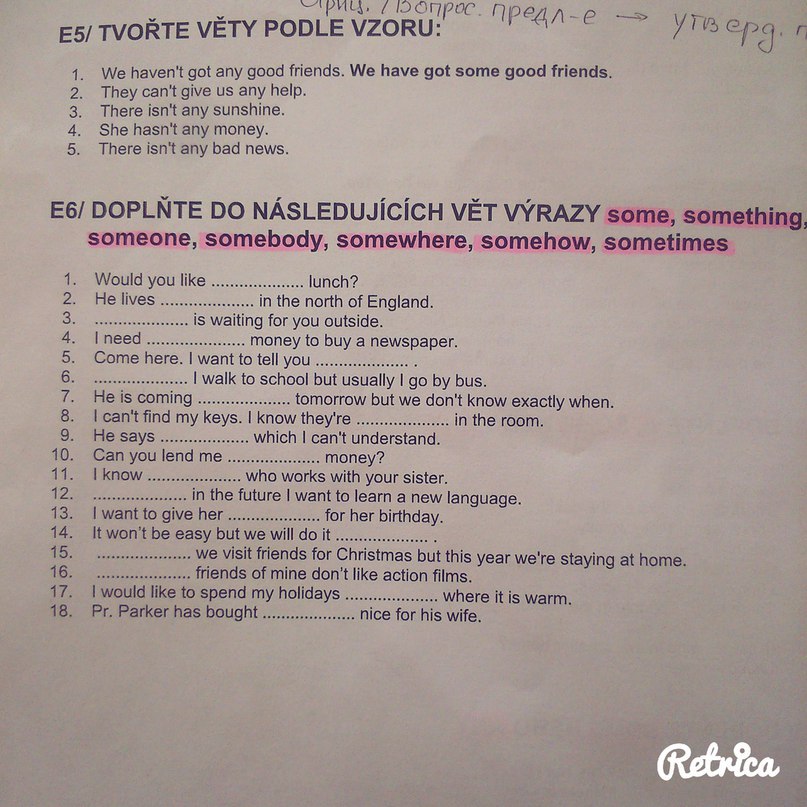 /Вопрос. предл-е → утверд.
E5/ TVOŘTE VĚTY PODLE VZORU:
1. We haven't got any good friends. We have got some good friends.
2. They can't give us any help.
3. There isn't any sunshine.
4. She hasn't any money.
5. There isn't any bad news.
E6/ DOPLŇTE DO NÁSLEDUJÍCÍCH VĚT VÝRAZY some, something,
someone, somebody, somewhere, somehow, sometimes
1. Would you like ................... lunch?
2. He lives ................... in the north of England.
3. ................... is waiting for you outside.
4. I need ................... money to buy a newspaper.
5. Come here. I want to tell you ................... .
6. ................... I walk to school but usually I go by bus.
7. He is coming ................... tomorrow but we don't know exactly when.
8. I can't find my keys. I know they're ................... in the room.
9. He says ................... which I can't understand.
10. Can you lend me ................... money?
11. I know ................... who works with your sister.
12. ................... in the future I want to learn a new language.
13. I want to give her ................... for her birthday.
14. It won't be easy but we will do it ................... .
15. ................... we visit friends for Christmas but this year we're staying at home.
16. ................... friends of mine don't like action films.
17. I would like to spend my holidays ................... where it is warm.
18. Pr. Parker has bought ................... nice for his wife.
Retrica